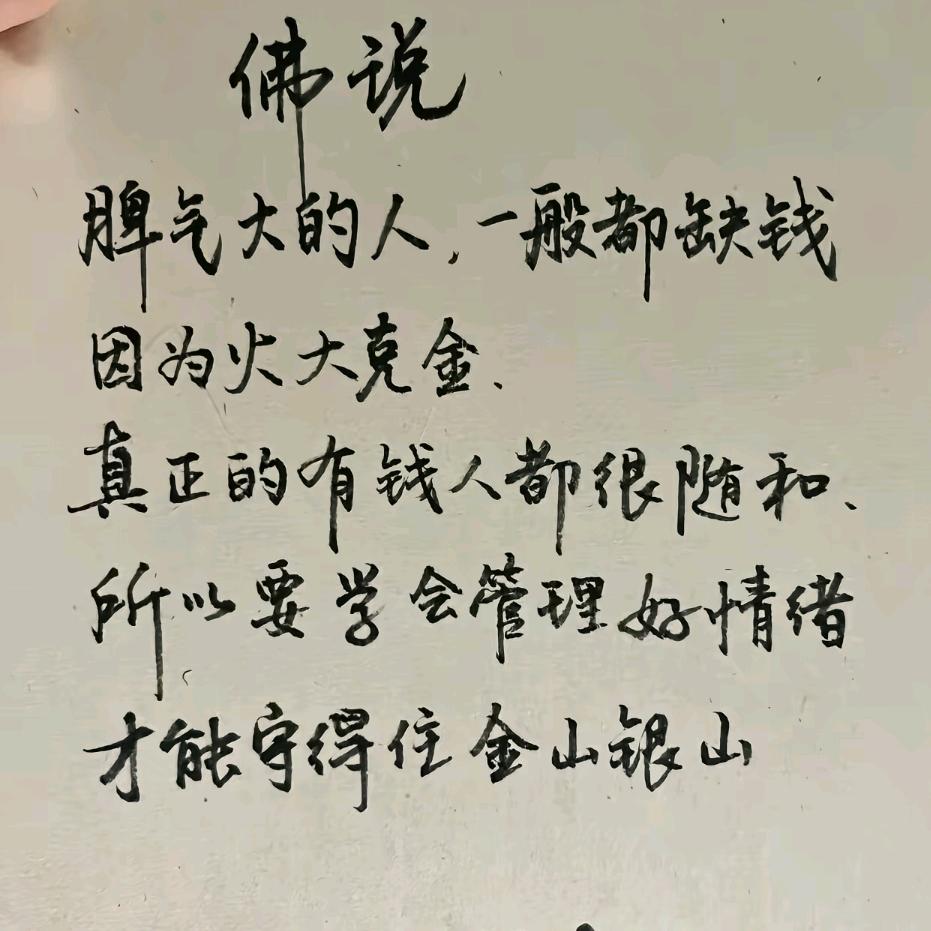 佛说
脾气大的人,一般都缺钱
因为火大克金、
真正的有钱人都很随和、
所以要学会管理好情绪
才能守得住金山银山